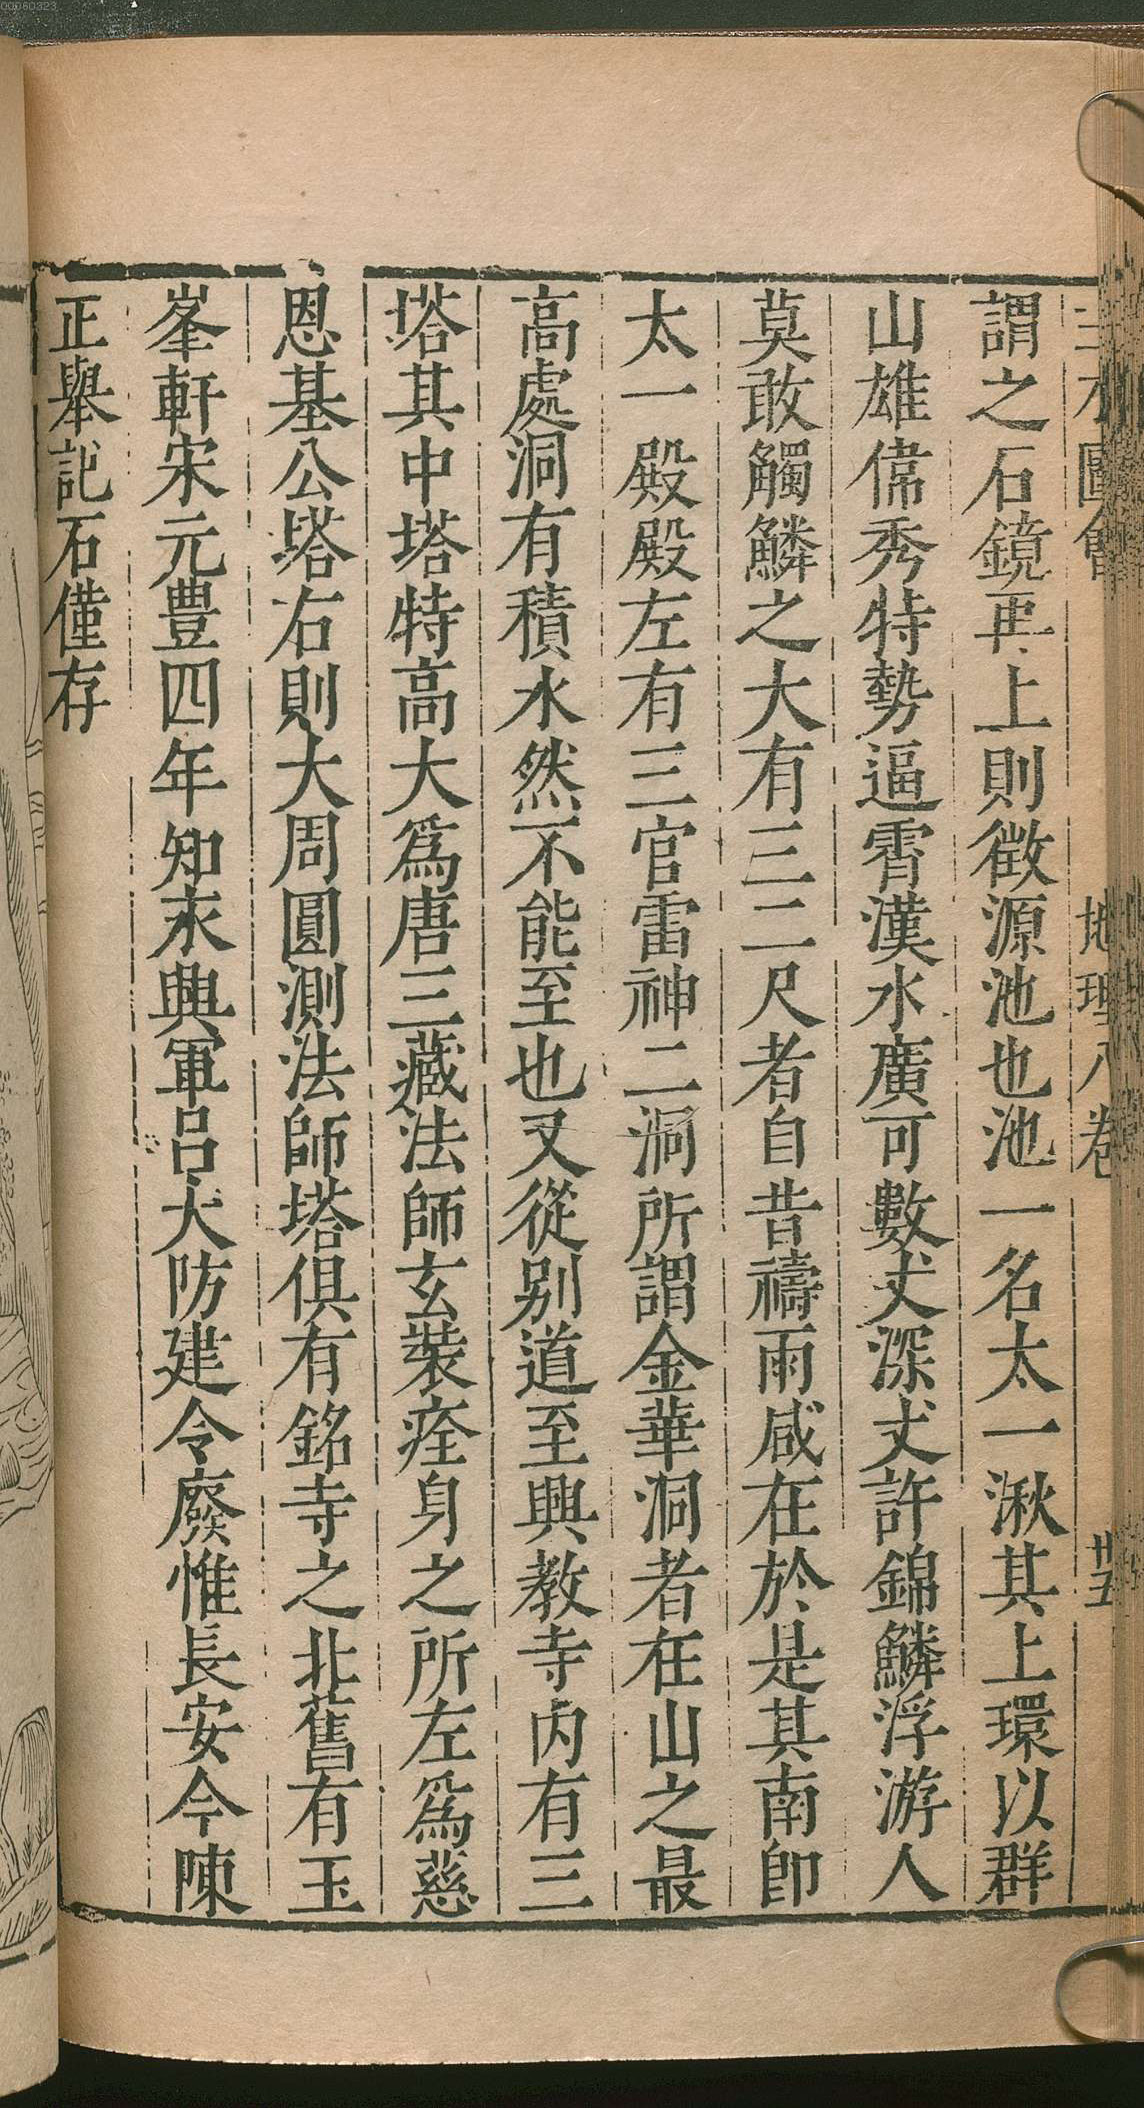 00060323
三才圖會 地理八卷 廿五
謂之石鏡再上則徵源池也池一名太一湫其上環以群
山雄偉秀特勢逼霄漢水廣可數丈深丈許錦鱗浮游人
莫敢觸鱗之大有三二尺者自昔禱雨咸在於是其南即
太一殿殿左有三官雷神二洞所謂金華洞者在山之最
高處洞有積水然不能至也又從别道至興教寺内有三
塔其中塔特高大爲唐三藏法師玄裝痊身之所左爲慈
恩基公塔右則大周圓測法師塔俱有銘寺之北舊有玉
峯軒宋元豊四年知永興軍呂大防建令廢惟長安令陳
正舉記石僅存